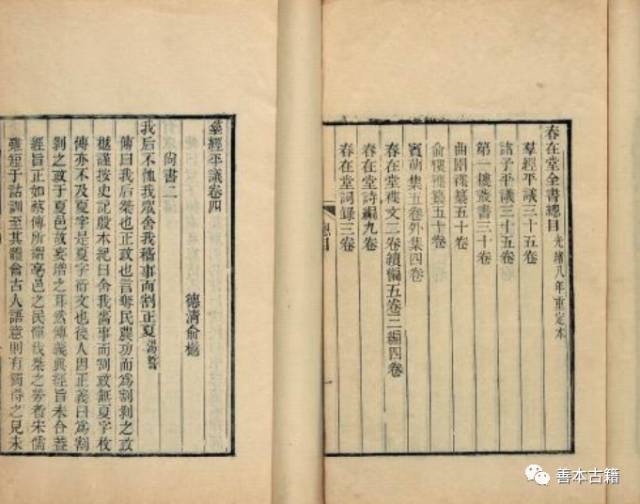 春在堂全書總目 光緒八年重定本
羣經平議三十五卷
諸子平議三十五卷
第一樓叢書三十卷
曲園襍纂五十卷
俞樓襍纂五十卷
賓萌集五卷外集四卷
春在堂襍文二卷續編五卷三編四卷
春在堂詩編九卷
春在堂詞錄三卷
總目
一
羣經平議卷四
德清俞樾
尚書二
我后不恤我眾舍我穡事而割正夏 湯誓
傳曰我后桀也正政也言奪民農功而為割剝之政
樾謹按史記殷本紀曰舍我嗇事而割政無夏字枚
傳亦不及夏字是夏字衍文也後人因正義曰為割
剝之政于夏邑故妄增之耳然傳義與經旨未合蓋
經旨正如蔡傳所謂亳邑之民憚伐桀之勞者宋儒
雖短于詁訓至其體會古人語意則有獨得之見未
善本古籍